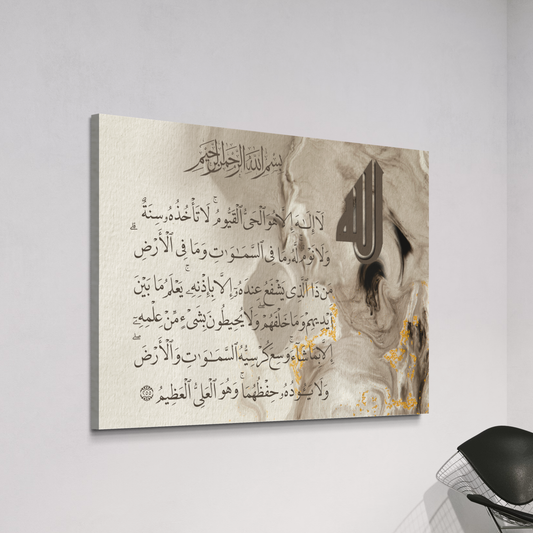 بِسْمِ ٱللَّهِ ٱلرَّحْمَٰنِ ٱلرَّحِيمِ
ٱللَّه
لَآ إِلَٰهَ إِلَّا هُوَ ٱلْحَىُّ ٱلْقَيُّومُ ۚ لَا تَأْخُذُهُۥ سِنَةٌ
وَلَا نَوْمٌ ۚ لَّهُۥ مَا فِى ٱلسَّمَٰوَٰتِ وَمَا فِى ٱلْأَرْضِ ۗ
مَن ذَا ٱلَّذِى يَشْفَعُ عِندَهُۥٓ إِلَّا بِإِذْنِهِۦ ۚ يَعْلَمُ مَا بَيْنَ
أَيْدِيهِمْ وَمَا خَلْفَهُمْ ۖ وَلَا يُحِيطُونَ بِشَىْءٍ مِّنْ عِلْمِهِۦٓ
إِلَّا بِمَا شَآءَ ۚ وَسِعَ كُرْسِيُّهُ ٱلسَّمَٰوَٰتِ وَٱلْأَرْضَ ۖ
وَلَا يَـُٔودُهُۥ حِفْظُهُمَا ۚ وَهُوَ ٱلْعَلِىُّ ٱلْعَظِيمُ ٢٥٥